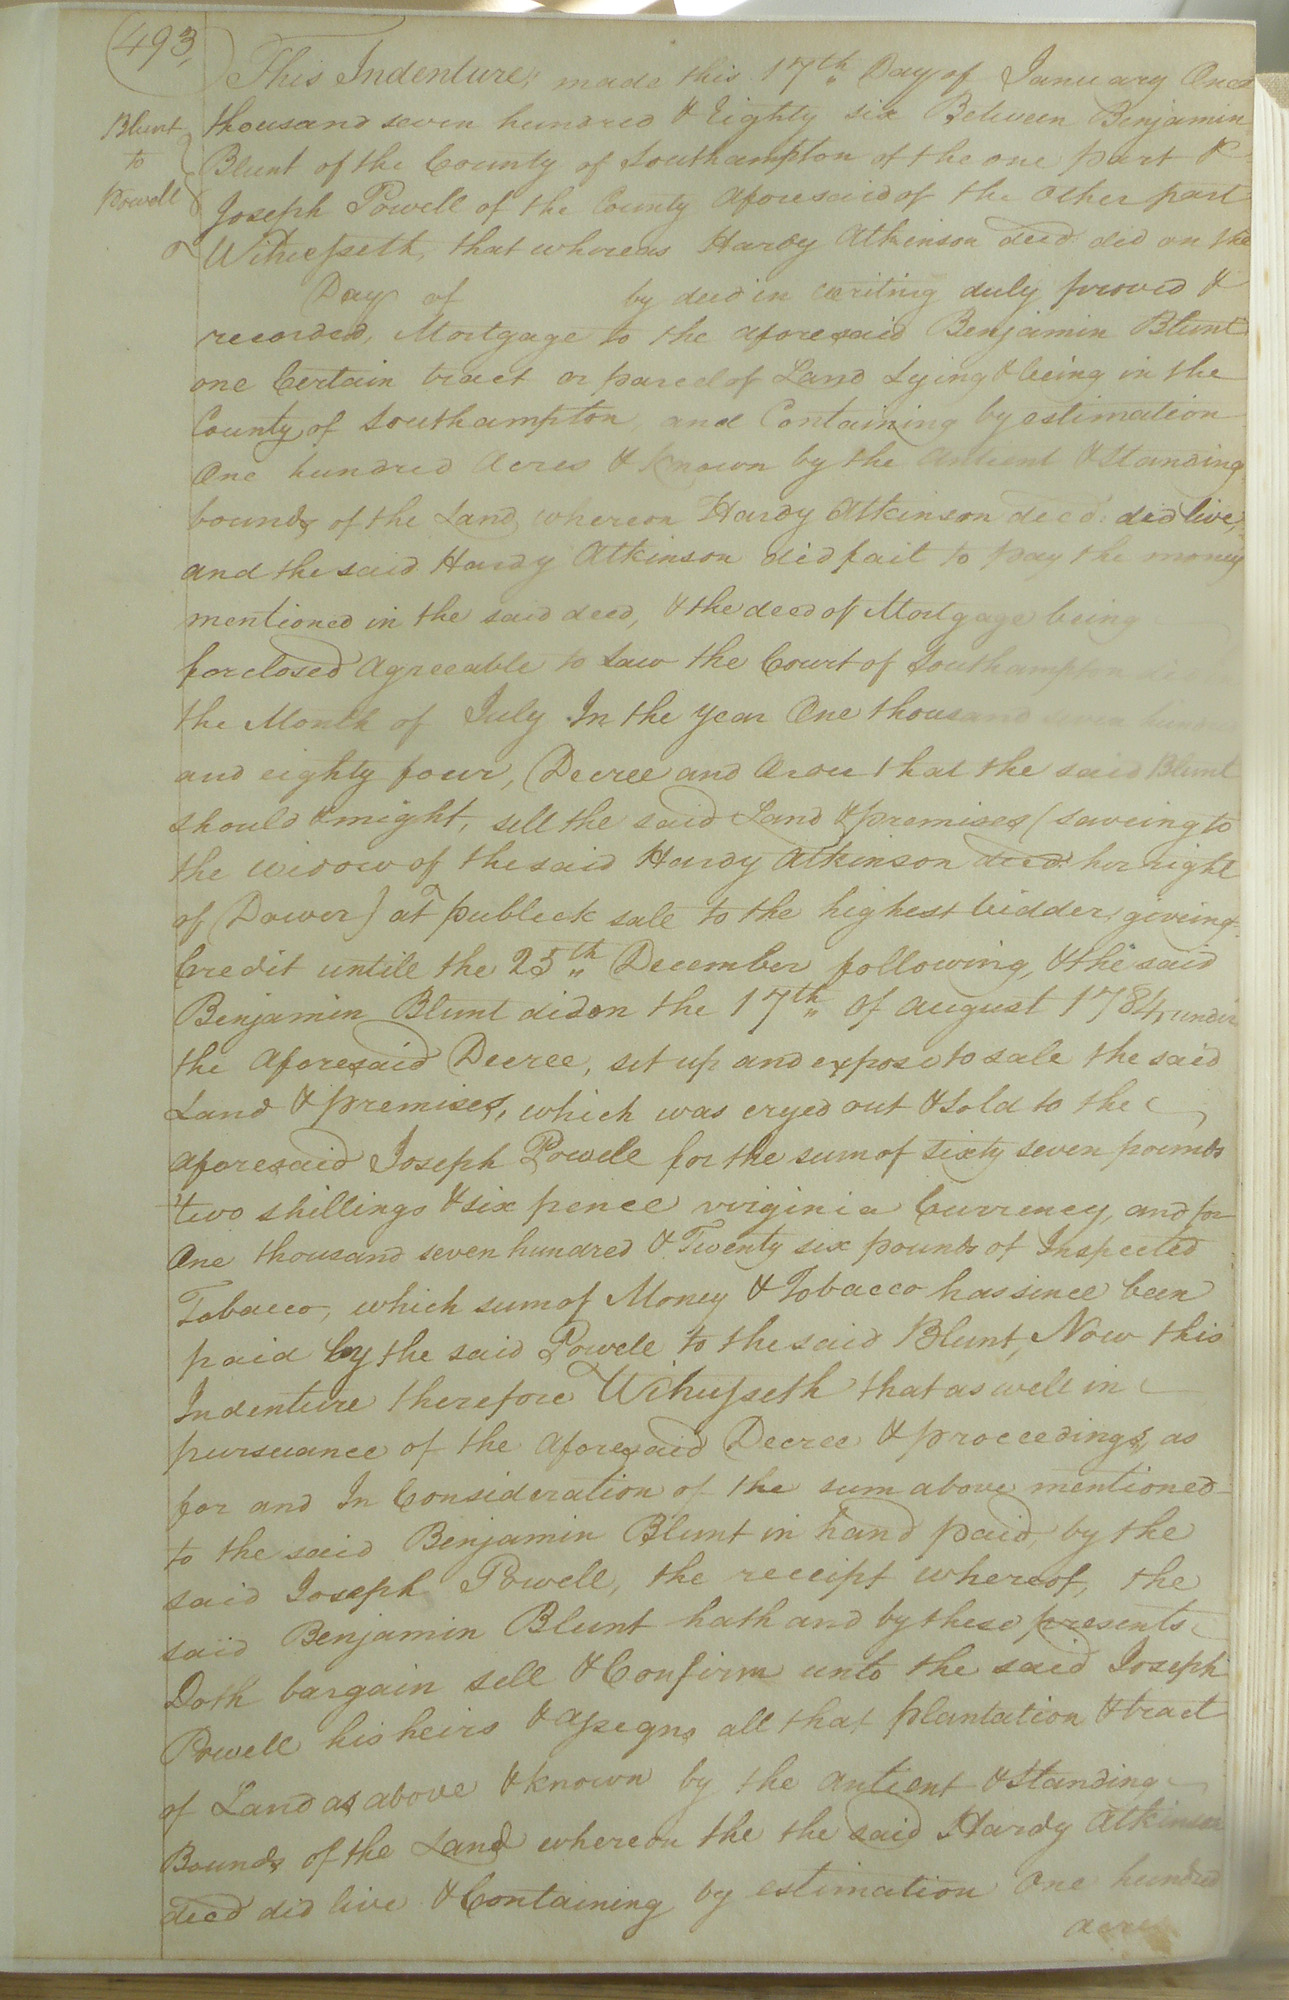 493,
Blunt
to
Powell
This Indenture, made this 17th Day of January One
thousand seven hundred & Eighty six Between Benjamin
Blunt of the County of Southampton of the one part &
Joseph Powell of the County Aforesaid of the Other part
Witnesseth, that whereas Hardy Atkinson decd. did on the
Day of by deed in writing duly proved &
recorded, Mortgage to the aforesaid Benjamin Blunt
one Certain tract or parcel of Land Lying & being in the
County of Southampton and Containing by estimation
One hundred Acres & known by the Antient & Standing
bounds of the Land, whereon Hardy Atkinson decd. did live,
and the said Hardy Atkinson did fail to pay the money
mentioned in the said deed, & the deed of Mortgage being
forclosed Agreeable to Law the Court of Southampton did
the Month of July In the year One thousand seven hundred
and eighty four, Decree and Order that the said Blunt
should & might, sell the said Land & premises (saveing to
the widow of the said Hardy Atkinson decd. her right
of Dower) at publeck sale to the highest bidder, giveing
Credit untile the 25th December following, & the said
Benjamin Blunt did on the 17th of August 1784, under
the Aforesaid Decree, set up and expose to sale the said
Land & premises, which was cryed out & sold to the
aforesaid Joseph Powell for the sum of sixty seven pounds
two shillings & six pence virginia Currency, and for
One thousand seven hundred & Twenty six pounds of Inspected
Tobacco, which sum of Money & Tobacco has since been
paid by the said Powell to the said Blunt, Now this
Indenture therefore Witnesseth that as well in
pursuance of the Aforesaid Decree & proceedings, as
for and In Consideration of the sum above mentioned
to the said Benjamin Blunt in hand paid, by the
said Joseph Powell, the receipt whereof, the
said Benjamin Blunt hath and by these presents
Doth bargain sell & Confirm unto the said Joseph
Powell his heirs & assegns all that plantation & tract
of Land as above & known by the antient & standing
Bounds of the Land whereon the the said Hardy Atkinson
decd did live & Containing by estimation One hundred
acres